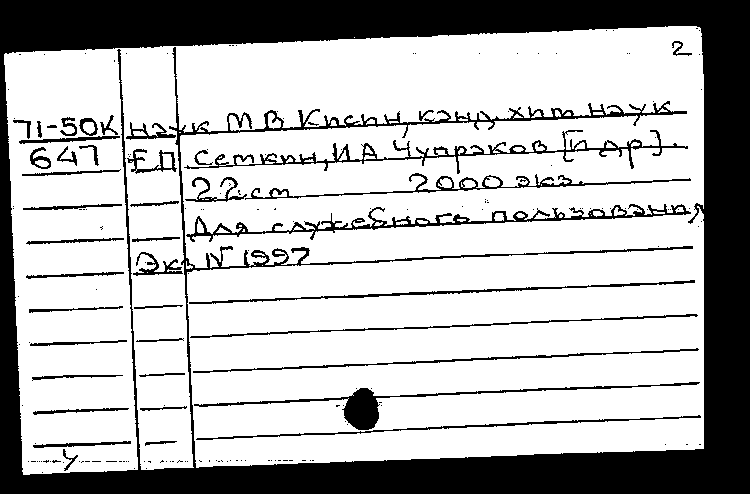 2
71-50К наук М В Кисин, канд. хим наук
647 Е.П Сеткин, И А Чупраков [и др].
22.см 2000 экз.
Для служебного пользования
Экз N 1997